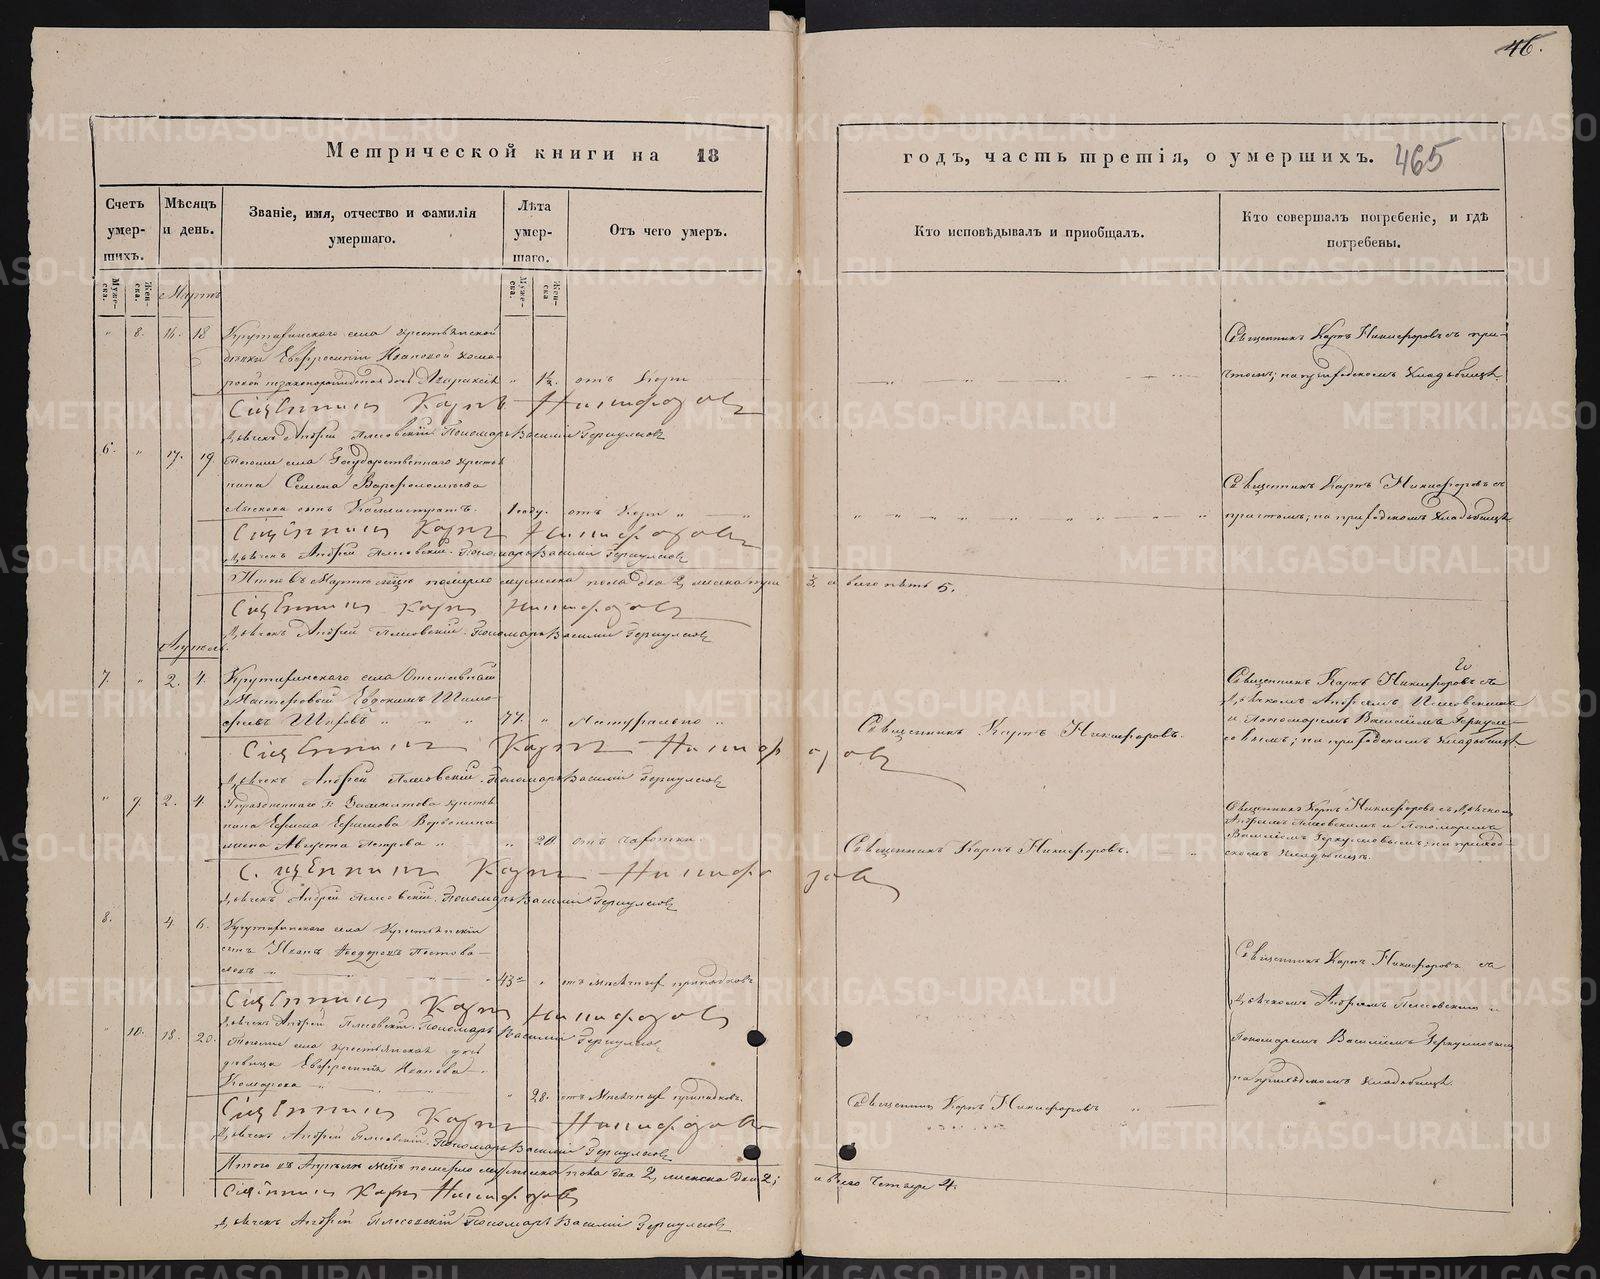 46.
Метрической книги на 18
годъ, часть третія, о умершихъ. 465
Счетъ умер-шихъ.
Мѣсяцъ и день.
Званіе, имя, отчество и фамилія умершаго.
Лѣта умер-шаго.
Отъ чего умеръ.
Кто исповѣдывалъ и пріобщалъ.
Кто совершалъ погребеніе, и гдѣ погребены.
Муже-ска.
Жен-ска.
Муже-ска.
Жен-ска
Мартъ
" 8. 16. 18
села крестьянской
дѣвки Евфросиніи Ивановой Кома-
ровой незаконорожденная дочь " 1½. отъ кори
Священникъ Карпъ Никифоровъ съ при-
чтомъ; на приходскомъ кладбищѣ
Священникъ Карпъ Никифоровъ
Дьячекъ Андрей Плесовскій. Пономарь Василій Геркулесовъ
6. " 17. 19
Тогоже села Государственнаго крестья
нина Семена Варфоломѣева
сынъ Каллистратъ. 1 году. отъ кори " "
Священникъ Карпъ Никифоровъ съ
причтомъ; на приходскомъ кладбищѣ
Священникъ Карпъ Никифоровъ
Дьячекъ Андрей Плесовскій. Пономарь Василій Геркулесовъ
Итого въ Мартѣ мцѣ померло мужеска пола два 2, женска три 3. а всего пять 5.
Священникъ Карпъ Никифоровъ
Дьячекъ Андрей Плесовскій. Пономарь Василій Геркулесовъ
Апрель.
7. " 2. 4.
села Отставный
Мастеровый Евдокимъ Тимо-
фѣевъ " " " 77. " Натурально "
Священникъ Карпъ Никифоровъ.
Священникъ Карпъ Никифоровъ съ
Дьячкомъ Андреемъ Плесовскимъ
и Пономаремъ Василіемъ Геркуле-
совымъ; на приходскомъ кладбищѣ
Священникъ Карпъ Никифоровъ
Дьячекъ Андрей Плесовскій. Пономарь Василій Геркулесовъ
" 9. 2. 4.
крестья
нина Ефима Ефимова
жена Августа Петрова " " 20 отъ чахотки.
Священникъ Карпъ Никифоровъ.
Священникъ Карпъ Никифоровъ съ Дьячкомъ
Андреемъ Плесовскимъ и Пономаремъ
Василіемъ Геркулесовымъ; на приход-
скомъ кладбищѣ.
Священникъ Карпъ Никифоровъ
Дьячекъ Андрей Плесовскій. Пономарь Василій Геркулесовъ
8. 4. 6.
села Крестьянскій
сынъ Иванъ Ѳедоровъ
43 " отъ припадковъ
Священникъ Карпъ Никифоровъ съ
Дьячкомъ Андреемъ Плесовскимъ и
Пономаремъ Василіемъ Геркулесовымъ
на приходскомъ кладбищѣ.
Священникъ Карпъ Никифоровъ
Дьячекъ Андрей Плесовскій. Пономарь Василій Геркулесовъ
" 10. 18. 20.
Тогоже села крестьянская дочь
дѣвица Евфросинія Иванова
Комарова " " 28. отъ припадковъ.
Священникъ Карпъ Никифоровъ "
Священникъ Карпъ Никифоровъ
Дьячекъ Андрей Плесовскій. Пономарь Василій Геркулесовъ
Итого въ Апрѣлѣ мцѣ померло мужеска пола два 2, женска два 2; а всего четыре 4.
Священникъ Карпъ Никифоровъ
Дьячекъ Андрей Плесовскій Пономарь Василій Геркулесовъ
METRIKI.GASO-URAL.RU